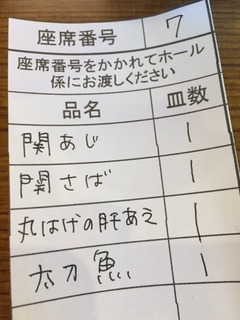 座席番号 7
座席番号をかかれてホール
係にお渡しください
品名 皿数
関あじ 1
関さば 1
丸はげの肝あえ 1
太刀魚 1